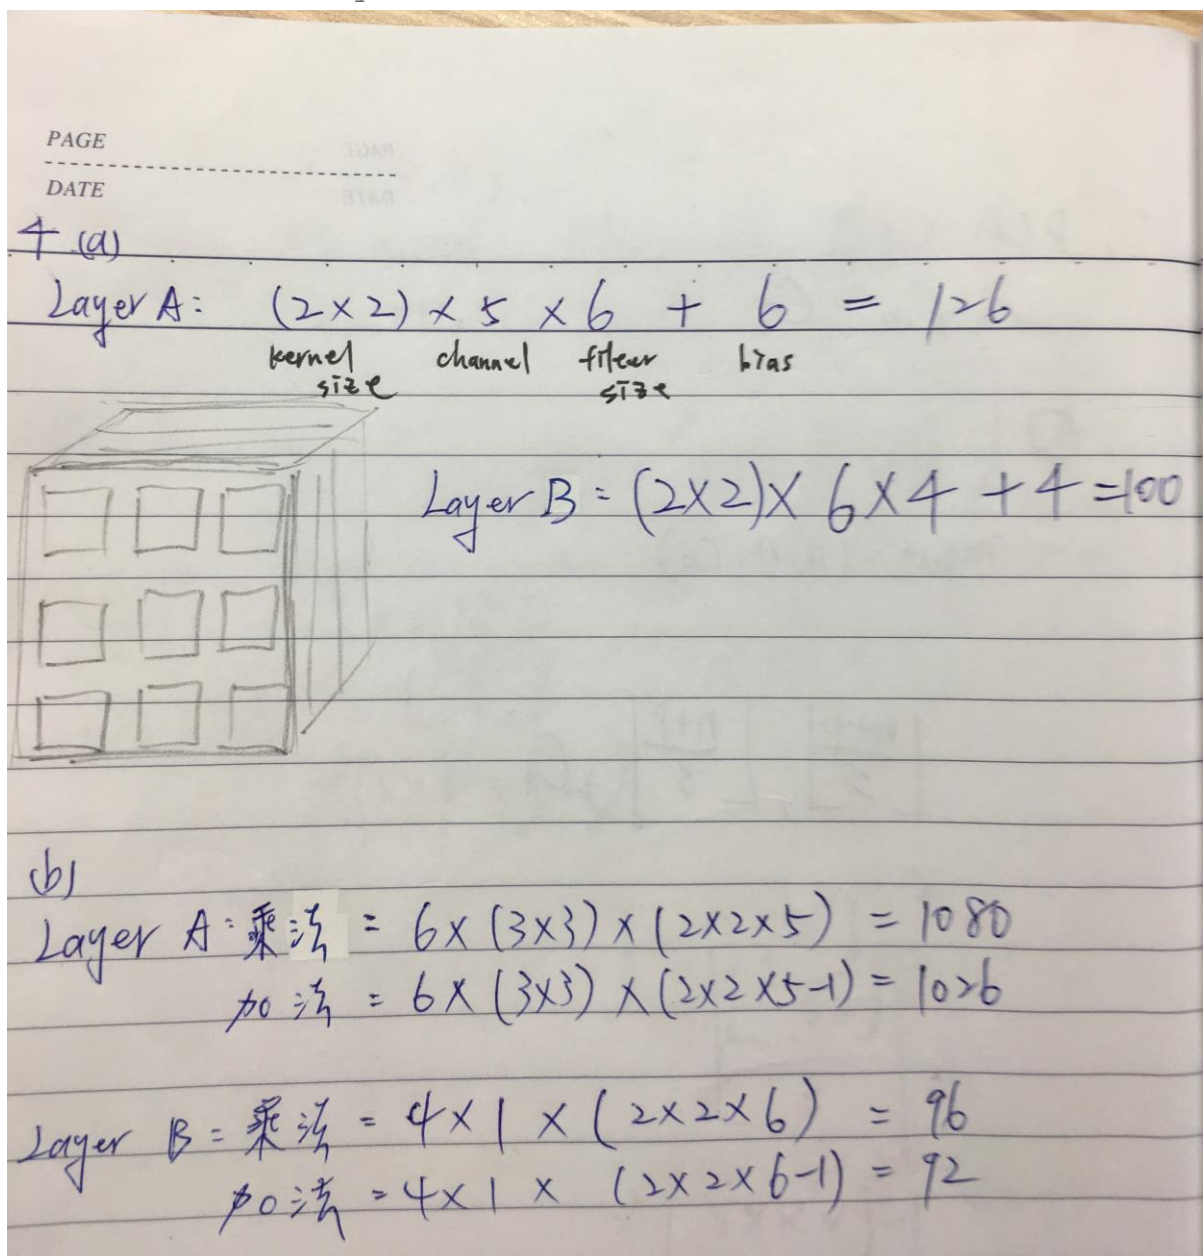 PAGE
DATE
4 (a)
Layer A: (2×2) × 5 × 6 + 6 = 126
kernel size channel filter size bias
Layer B = (2×2)× 6×4 +4=100
(b)
Layer A: 乘法 = 6× (3×3) × (2×2×5) = 1080
加法 = 6× (3×3) × (2×2×5-1) = 1026
Layer B = 乘法 = 4×1 × (2×2×6) = 96
加法 = 4×1 × (2×2×6-1) = 92